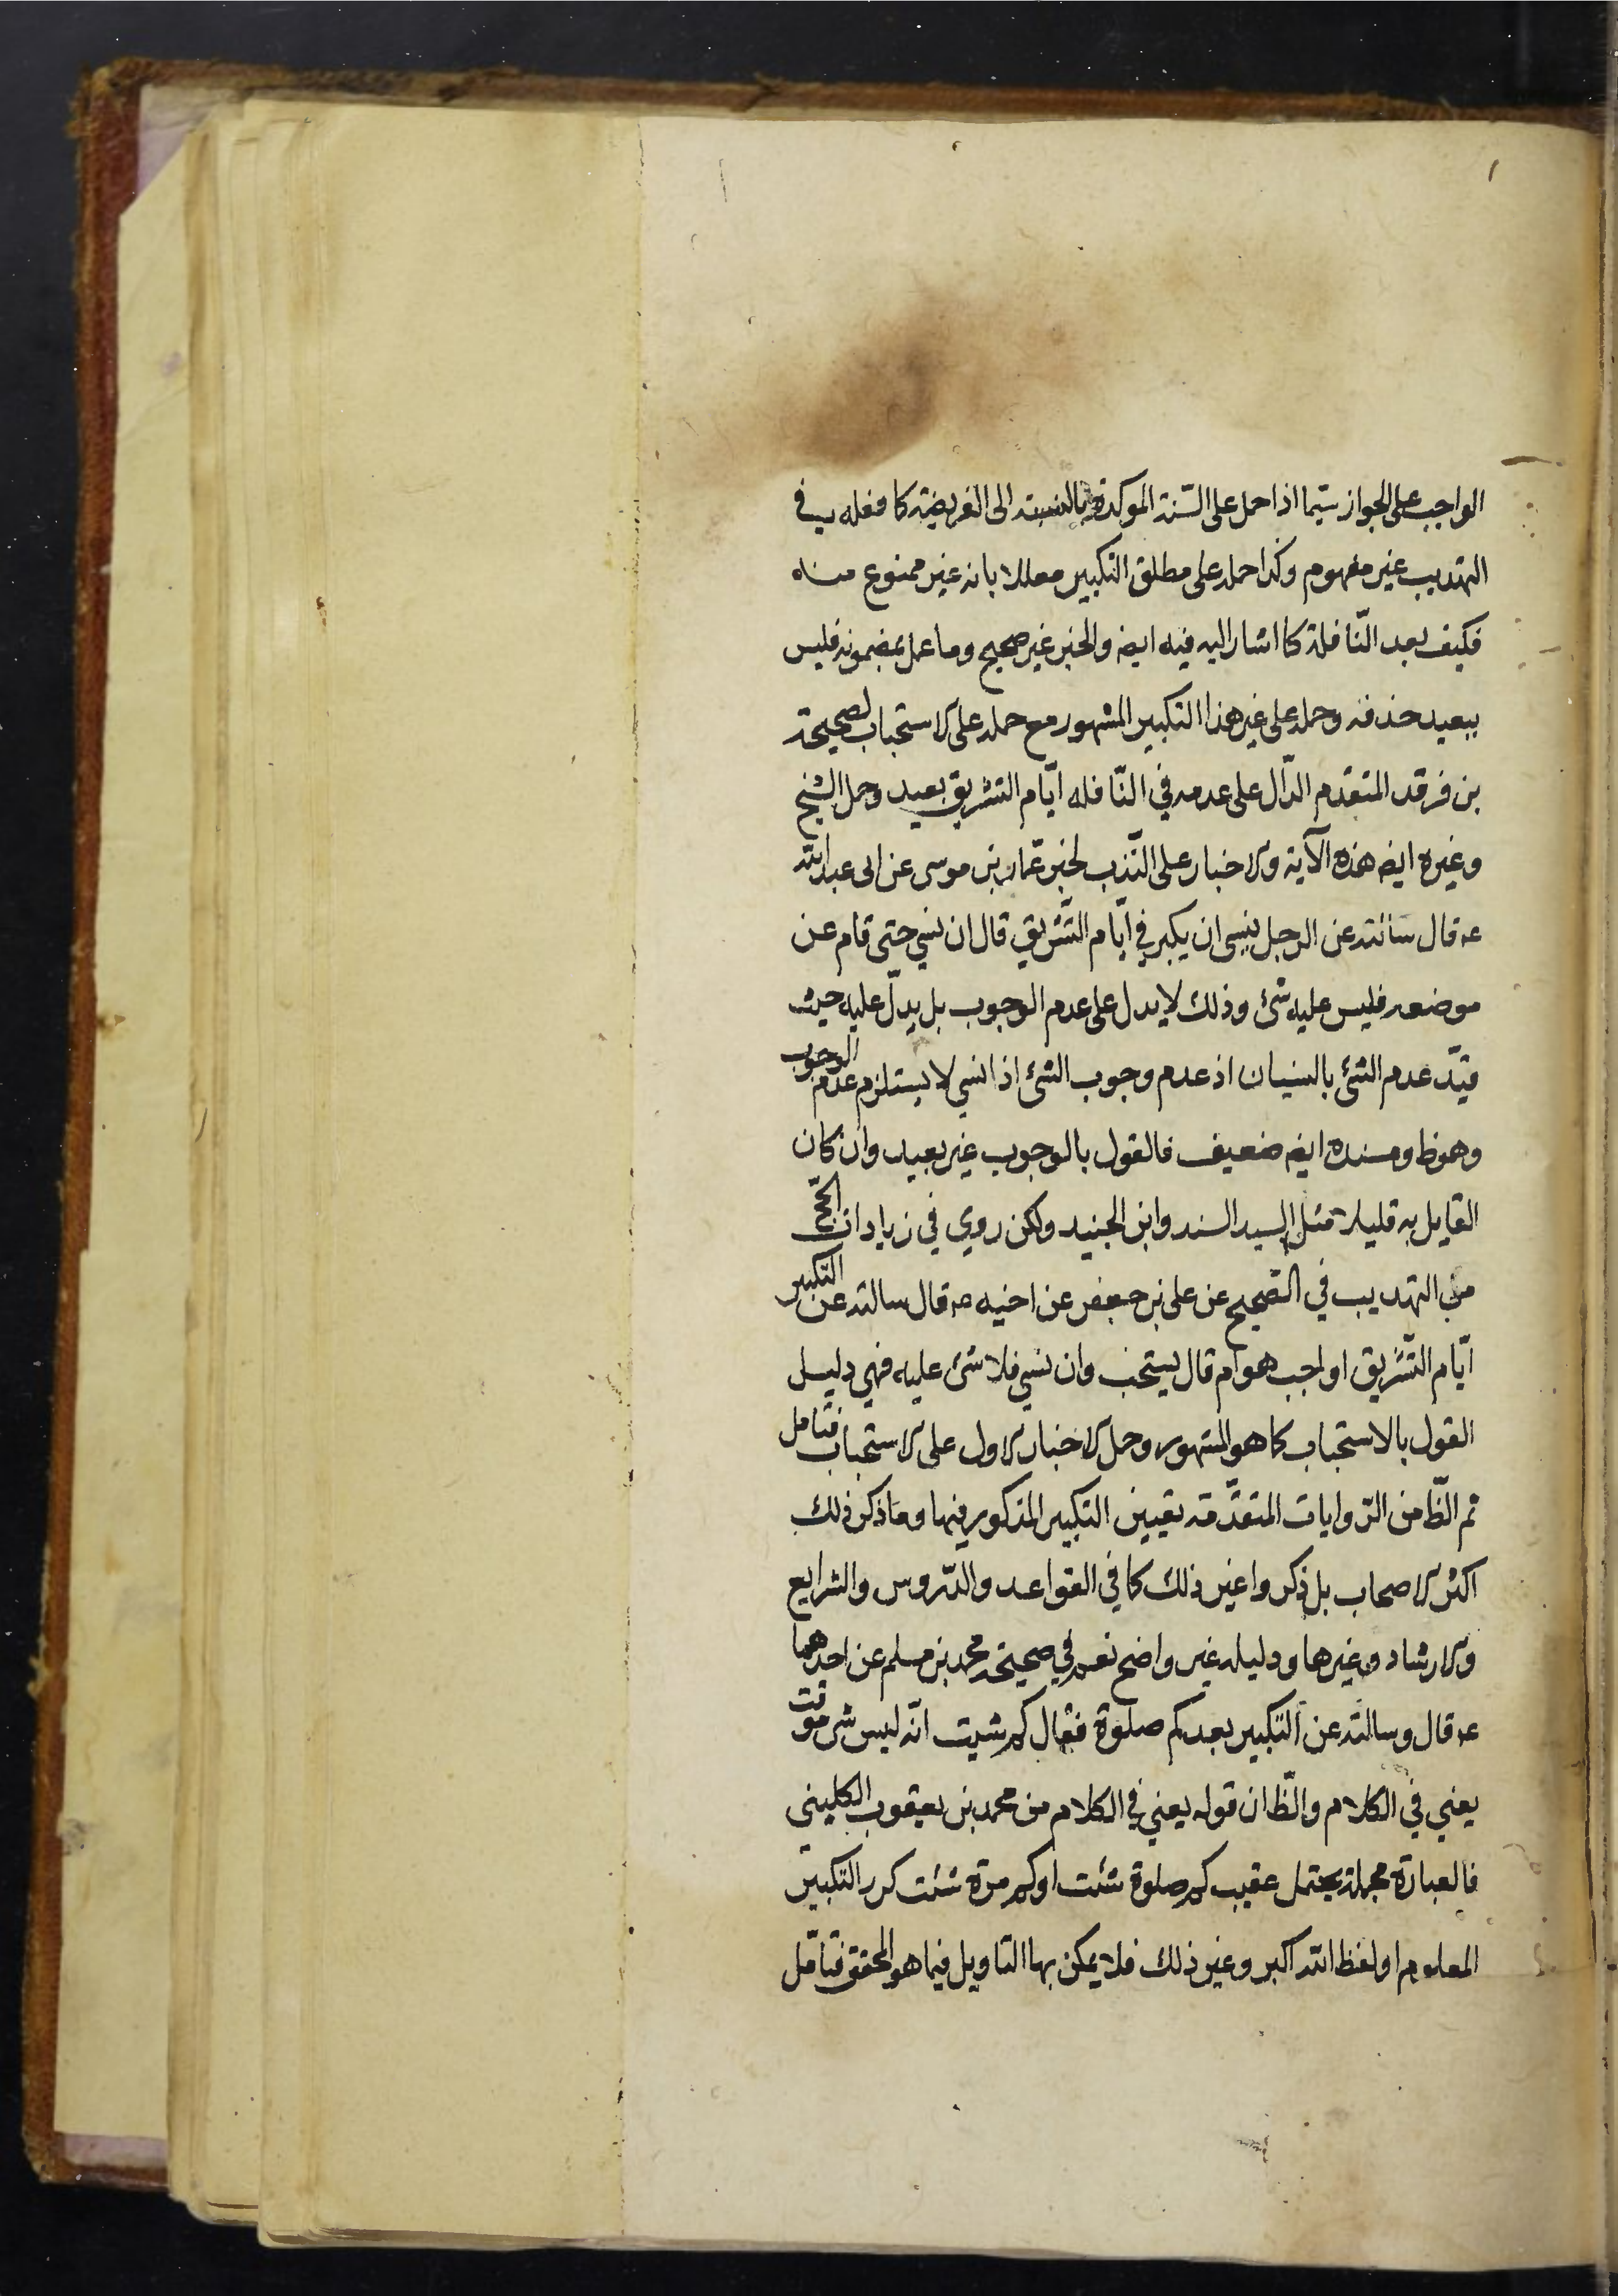 الواجب على الجواز سيّما اذا حمل على السّنة الموكدة بالنسبة الى الفريضة كما فعله يب في
التهذيب غير مفهوم وكذا حمله على مطلق التكبير معللا بانه غير ممنوع منه
فكيف بعد النّافلة كما اشار اليه فيه ايضه والخبر غير صحيح وما عمل بمضمونه فليس
ببعيد حذفه وحمله على غير هذا التكبير المشهور مع حمله على الاستحباب لصحيحة
بن فرقد المتقدّم الدّال على عدمه في النّافله ايّام التشريق بعيد وحمل الشيخ
وغيره ايضه هذه الآية والاخبار على النّدب لخبر عمّار بن موسى عن ابى عبد الله
عه قال سائته عن الرجل ينسى ان يكبر في ايّام التّشريق قال ان نسي حتى قام عن
موضعه فليس عليه شئ وذلك لا يدل على عدم الوجوب بل يدلّ عليه حيث
قيّد عدم الشئ بالنسيان اذ عدم وجوب الشئ اذا نسي لا يستلزم عدم الوجوب
وهو ظ ومسنده ايضه ضعيف فالقول بالوجوب غير بعيد وان كان
القايل به قليلا مثل السيد السند وابن الجنيد ولكن روي في زيادات الحّج
من التهذيب في الصّحيح عن على بن جعفر عن اخيه عه قال سالته عن التكبير
ايّام التّشريق اواجب هو ام قال يستحب وان نسي فلا شئ عليه فهي دليل
القول بالاستحباب كما هو المشهور وحمل الاخبار الاول على الاستحباب فتامل
ثم الظّ من الرّوايات المتقدّمة تعيين التكبير المذكور فيها وما ذكر ذلك
اكثر الاصحاب بل ذكروا غير ذلك كما في القواعد والدّروس والشرايع
والارشاد وغيرها ودليله غير واضح نعم في صحيحة محمد بن مسلم عن احدهما
عه قال وسالته عن التكبير بعد كم صلوة فقال كم شيت انّه ليس شى موقت
يعني في الكلام والظّ ان قوله يعني في الكلام من محمد بن يعقوب الكليني
فالعبارة مجملة يحتمل عقيب كم صلوة شئت او كم مرة شئت كرر التكبير
المعلوم او لفظ الله اكبر وغير ذلك فلا يمكن بها التاويل فيما هو المحقق فتامّل